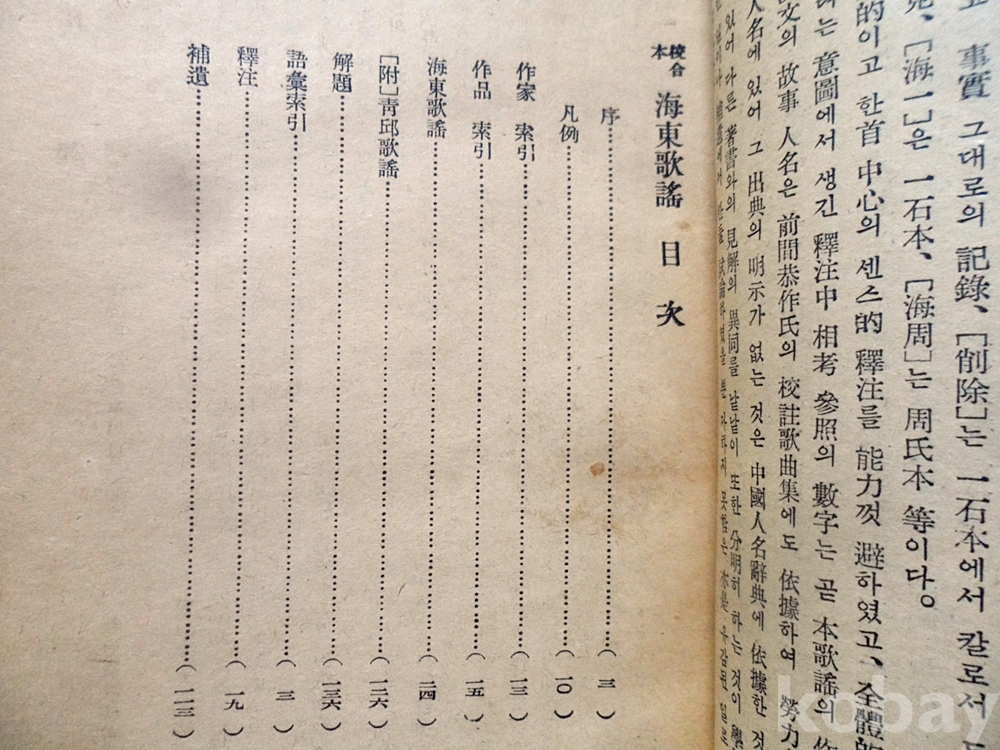 事實 그대로의 記錄、「削除」는 一石本에서 칼로서
「海一」은 一石本、「海周」는 周氏本 等이다。
的이고 한首 中心의 센스的 釋注를 能力껏 避하였고、全體的
는 意圖에서 생긴 釋注中 相考 參照의 數字는 곧 本歌謠의 作
文의 故事 人名은 前間恭作氏의 校註歌曲集에도 依據하여 勞力
人名에 있어 그 出典의 明示가 없는 것은 中國人名辭典에 依據한 것
있어 다른 著書와의 見解의 異同을 낱낱이 또한 分明히 하는 것이
校合本 海東歌謠 目次
序(三)
凡例(一〇)
作家 索引(一三)
作品 索引(一五)
海東歌謠(二四)
「附」靑邱歌謠(一二六)
解題(一三六)
語彙索引(三)
釋注(一九)
補遺(一一三)
kobay